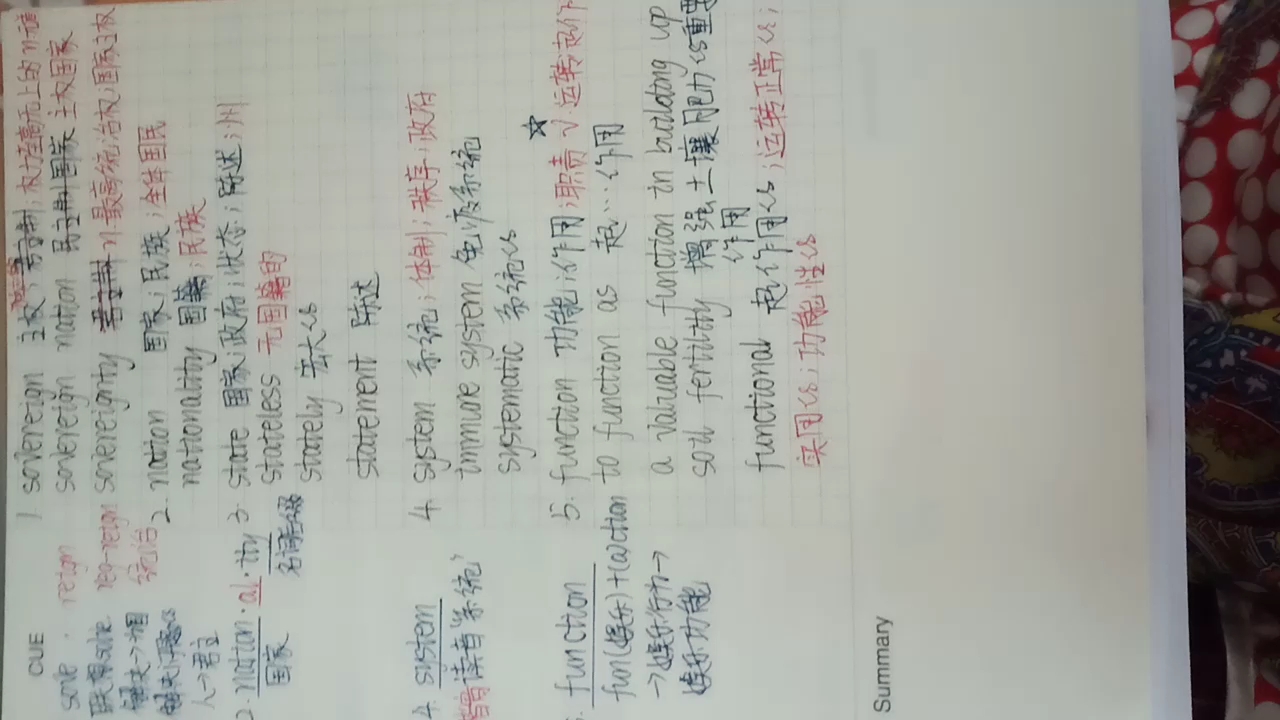 CUE
sove · reign
联想solve
解决→相
解决问题的
人→君主
reg=reign
统治
2. nation·al·ity
国家
名词后缀
4. system
谐音"读者系统"
5. function
fun(娱乐)+(a)ction
→娱乐行为→
娱乐功能
1 sovereign 主权;君主;权力至高无上的
sovereign nation 主权国家
sovereignty n.最高统治权;国家主权
2. nation 国家;民族;全体国民
nationality 国籍;民族
3. state 国家;政府;状态;陈述;州
stateless 无国籍的
stately 宏大的
statement 陈述
4. system 系统;体制;秩序;政府
immune system 免疫系统
systematic 系统的
5. function 功能;作用;职责 v.运转;起作
to function as 起…作用
a valuable function in building up
soil fertility 增强土壤肥力的重要
作用
functional 起作用的;运转正常的;
实用的;功能性的
Summary